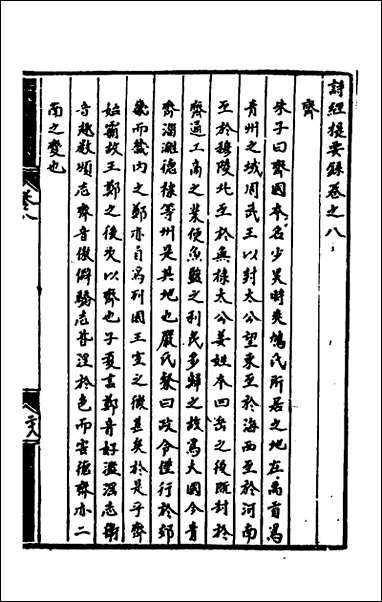 詩經提要錄卷之八
齊
朱子曰齊國本名少昊時爽鳩氏所居之地在禹貢為
青州之域周武王以封太公望東至於海西至於河南
至於穆陵北至於無棣太公姜姓本四岳之後既封於
齊通工商之業便魚鹽之利民多歸之故為大國今青
齊淄濰德棣等州是其地也嚴氏粲曰政令僅行於郊
畿而畿内之鄭亦自為列國王室之微甚矣於是乎齊
始霸故王鄭之後次以齊也子夏言鄭音好濫淫志衛
音趨數煩志齊音傲僻驕志皆淫於色而害德齊亦二
南之變也
卷八